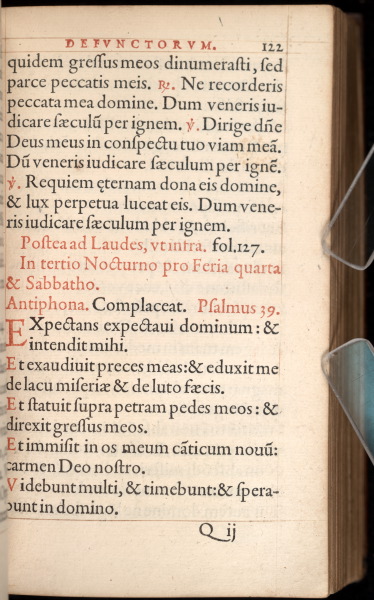 DEFVNCTORVM. 122
quidem greſſus meos dinumeraſti, ſed
parce peccatis meis. ℟. Ne recorderis
peccata mea domine. Dum veneris iu-
dicare ſæculũ per ignem. ℣. Dirige dñe
Deus meus in conſpectu tuo viam meã.
Dũ veneris iudicare ſæculum per ignẽ.
℣. Requiem ęternam dona eis domine,
& lux perpetua luceat eis. Dum vene-
ris iudicare ſæculum per ignem.
Poſtea ad Laudes, vt infra. fol. 127.
In tertio Nocturno pro Feria quarta
& Sabbatho.
Antiphona. Complaceat. Pſalmus 39.
EXpectans expectaui dominum: &
intendit mihi.
Et exaudiuit preces meas: & eduxit me
de lacu miſeriæ & de luto fæcis.
Et ſtatuit ſupra petram pedes meos: &
direxit greſſus meos.
Et immiſit in os meum cãticum nouũ:
carmen Deo noſtro.
Videbunt multi, & timebunt: & ſpera-
bunt in domino.
Q ij